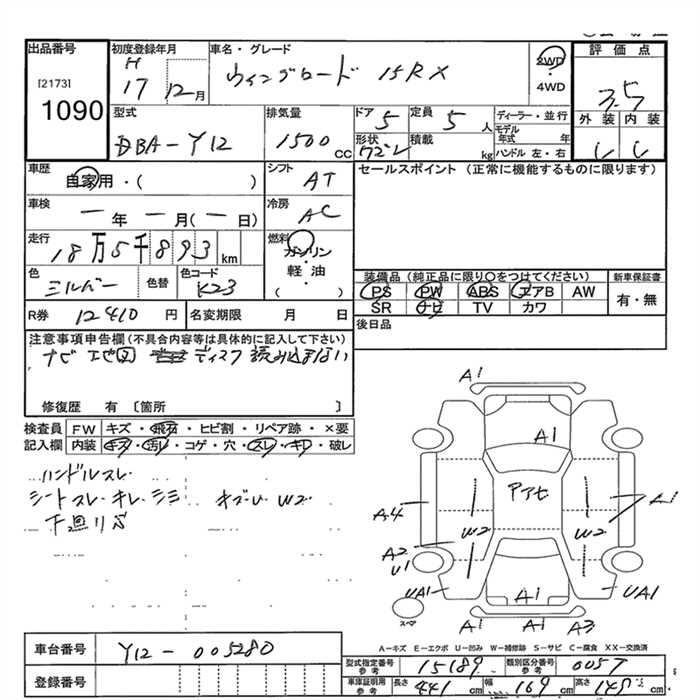 出品番号 初度登録年月 車名・グレード 評価点
[2173] H 17 12月 ウイングロード 15RX 2WD 4WD 3.5
1090
外装 内装
型式 排気量 ドア 5 定員 5人 ディーラー・並行
DBA-Y12 1500cc 形状 ワゴン 積載 kg モデル年式 年 ハンドル 左・右
車歴 自家用・( ) シフト AT セールスポイント(正常に機能するものに限ります)
車検 ー年ー月(ー日) 冷房 AC
走行 18万5千893km 燃料 ガソリン 軽・油 ( )
色 シルバー 色替 色コード K23 装備品(純正品に限り○をつけてください) 新車保証書
PS PW ABS エアB AW 有・無
SR ナビ TV カワ
R券 12410円 名変期限 月 日 後日品
注意事項申告欄(不具合内容等は具体的に記入して下さい)
ナビ 地図 ディスク 読み込まない
修復歴 有 [箇所 ]
検査員 FW キズ・飛石・ヒビ割・リペア跡・×要
記入欄 内装 キズ・汚レ・コゲ・穴・スレ・キレ・破レ
ハンドルスレ
シートスレ・キレ・シミ キズU W2
下廻りサビ
A1
A1
アアセ
A4 A1
W2 W2
A2
U1
UA1 A1 UA1
スペア A1 A1 A3
A-キズ E-エクボ U-凹み W-補修跡 S-サビ C-腐食 XX-交換済
車台番号 Y12-005280
型式指定番号 参考 15189 類別区分番号 参考 0057
登録番号 車庫証明用 参考 長さ 441cm 幅 169cm 高さ cm